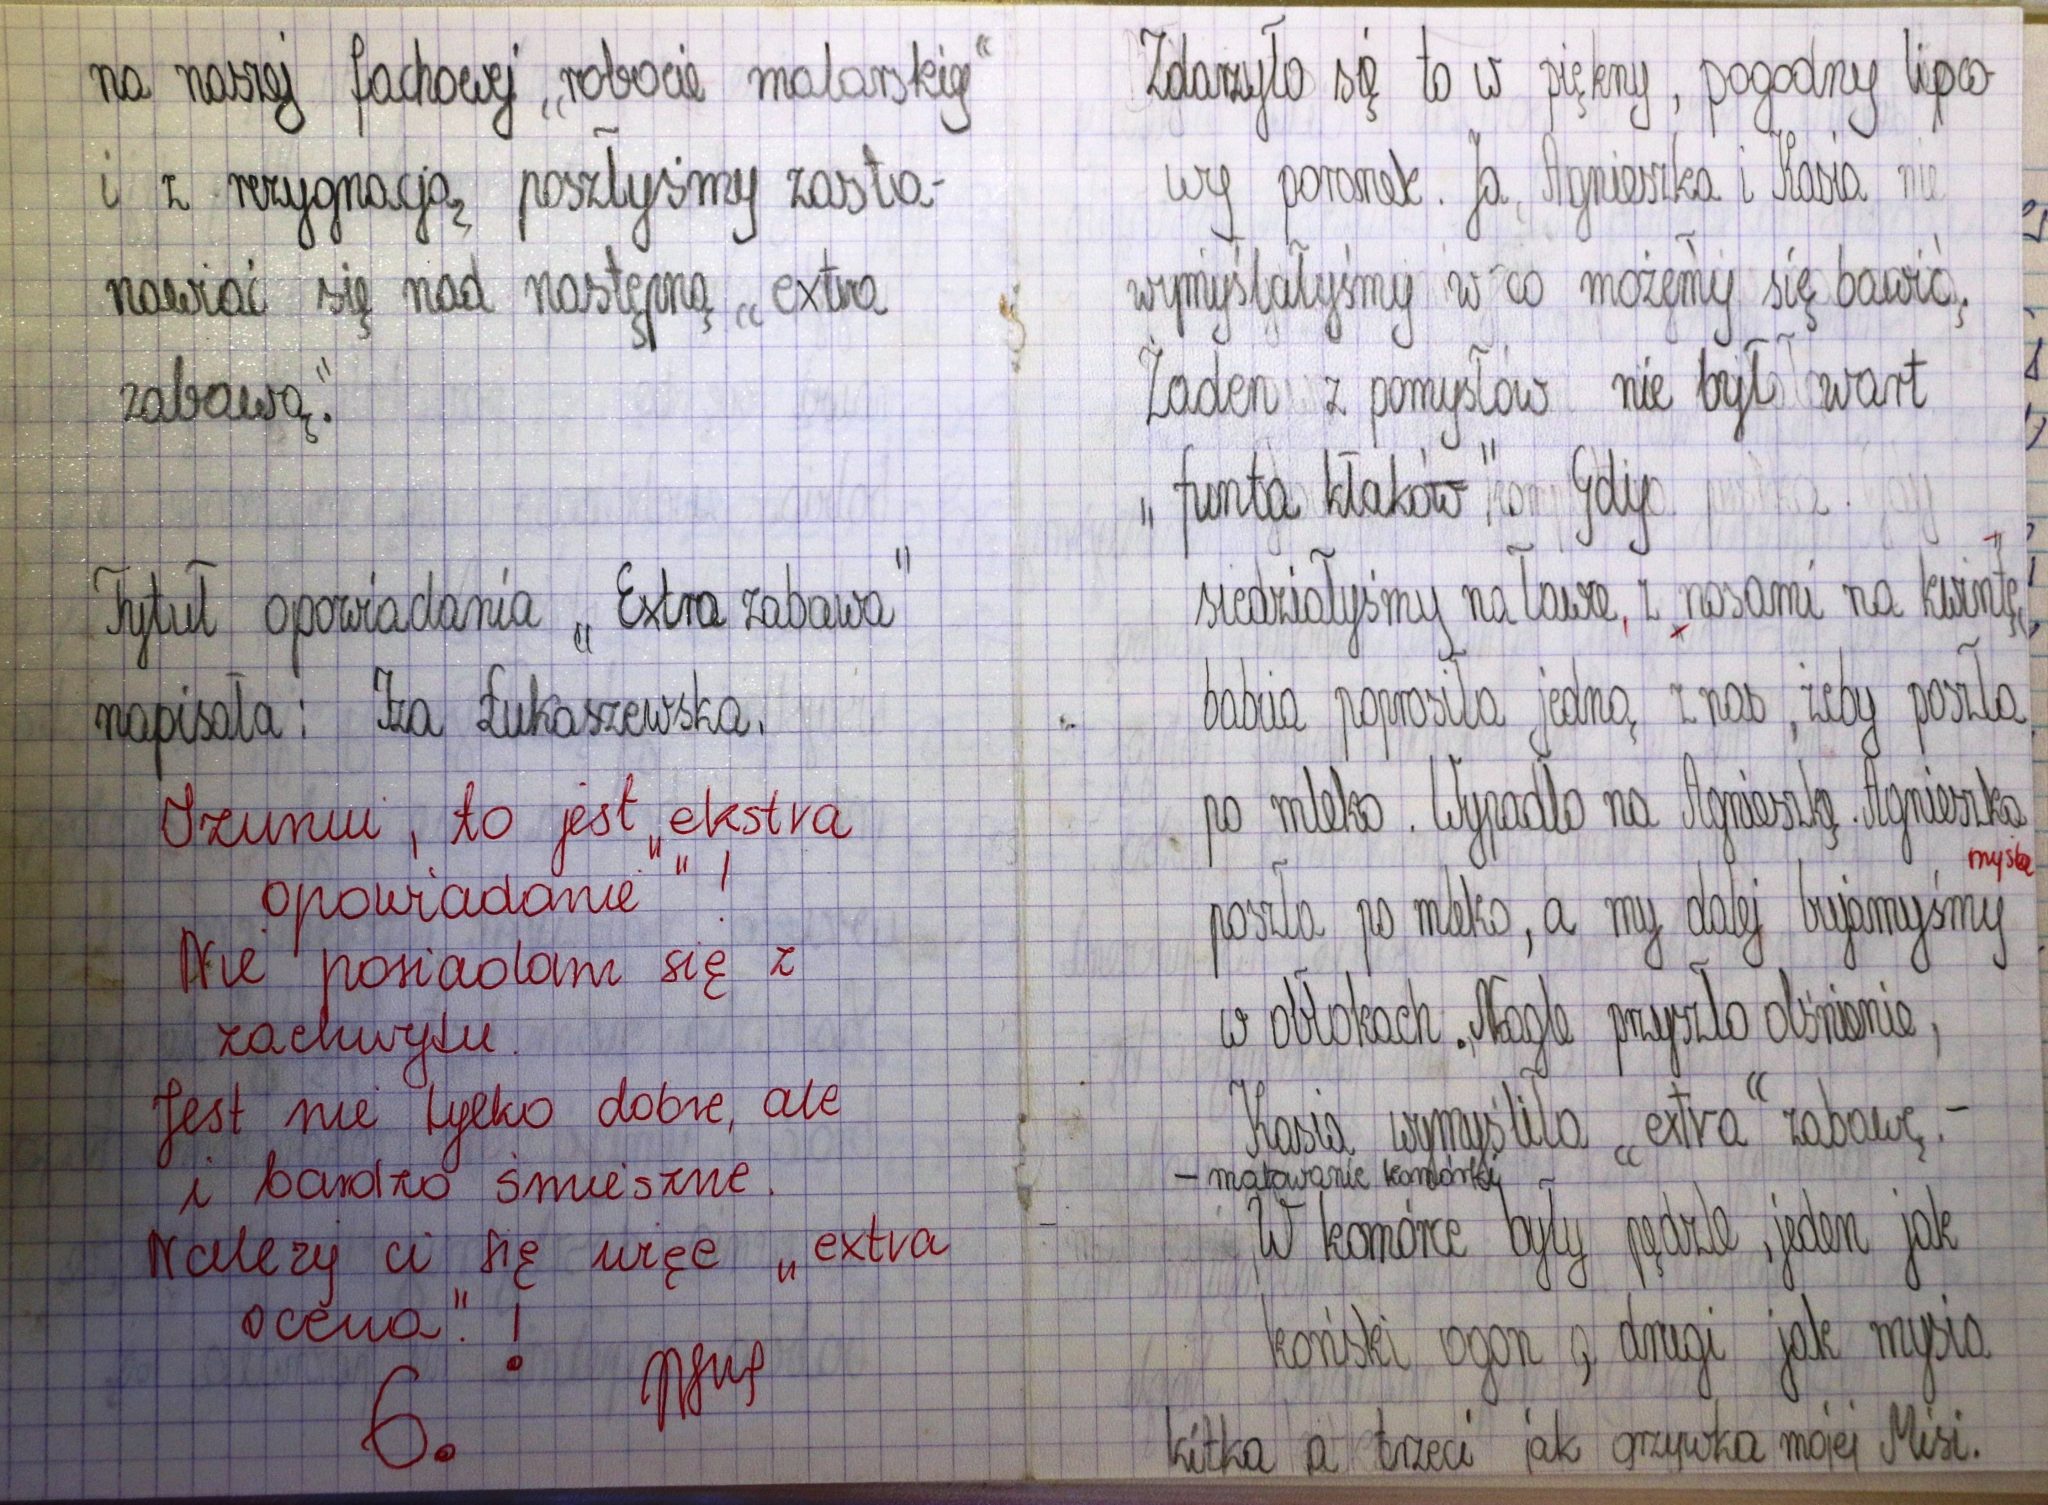 na naszej fachowej „robocie malarskiej“
i z rezygnacją poszłyśmy zasta-
nawiać się nad następną „extra
zabawą.”
Tytuł opowiadania „Extra zabawa”
napisała: Iza Łukaszewska.
Izuniu, to jest „ekstra
opowiadanie”!
Nie posiadam się z
zachwytu.
Jest nie tylko dobre, ale
i bardzo śmieszne.
Należy ci się więc „extra
ocena”. !
6.
Zdarzyło się to w piękny, pogodny lipco-
wy poranek. Ja, Agnieszka i Kasia nie
wymyślałyśmy w co możemy się bawić.
Żaden z pomysłów nie był wart
„funta kłaków”. Gdy
siedziałyśmy na ławce, z nosami na kwintę,
babcia poprosiła jedną z nas, żeby poszła
po mleko. Wypadło na Agnieszkę. Agnieszka
poszła po mleko, a my dalej bujamyśmy
w obłokach. Nagle przyszło olśnienie,
Kasia wymyśliła „extra“ zabawę. -
- malowanie komórki
W komórce były pędzle, jeden jak
koński ogon, drugi jak mysia
kitka a trzeci jak grzywka mojej Misi.